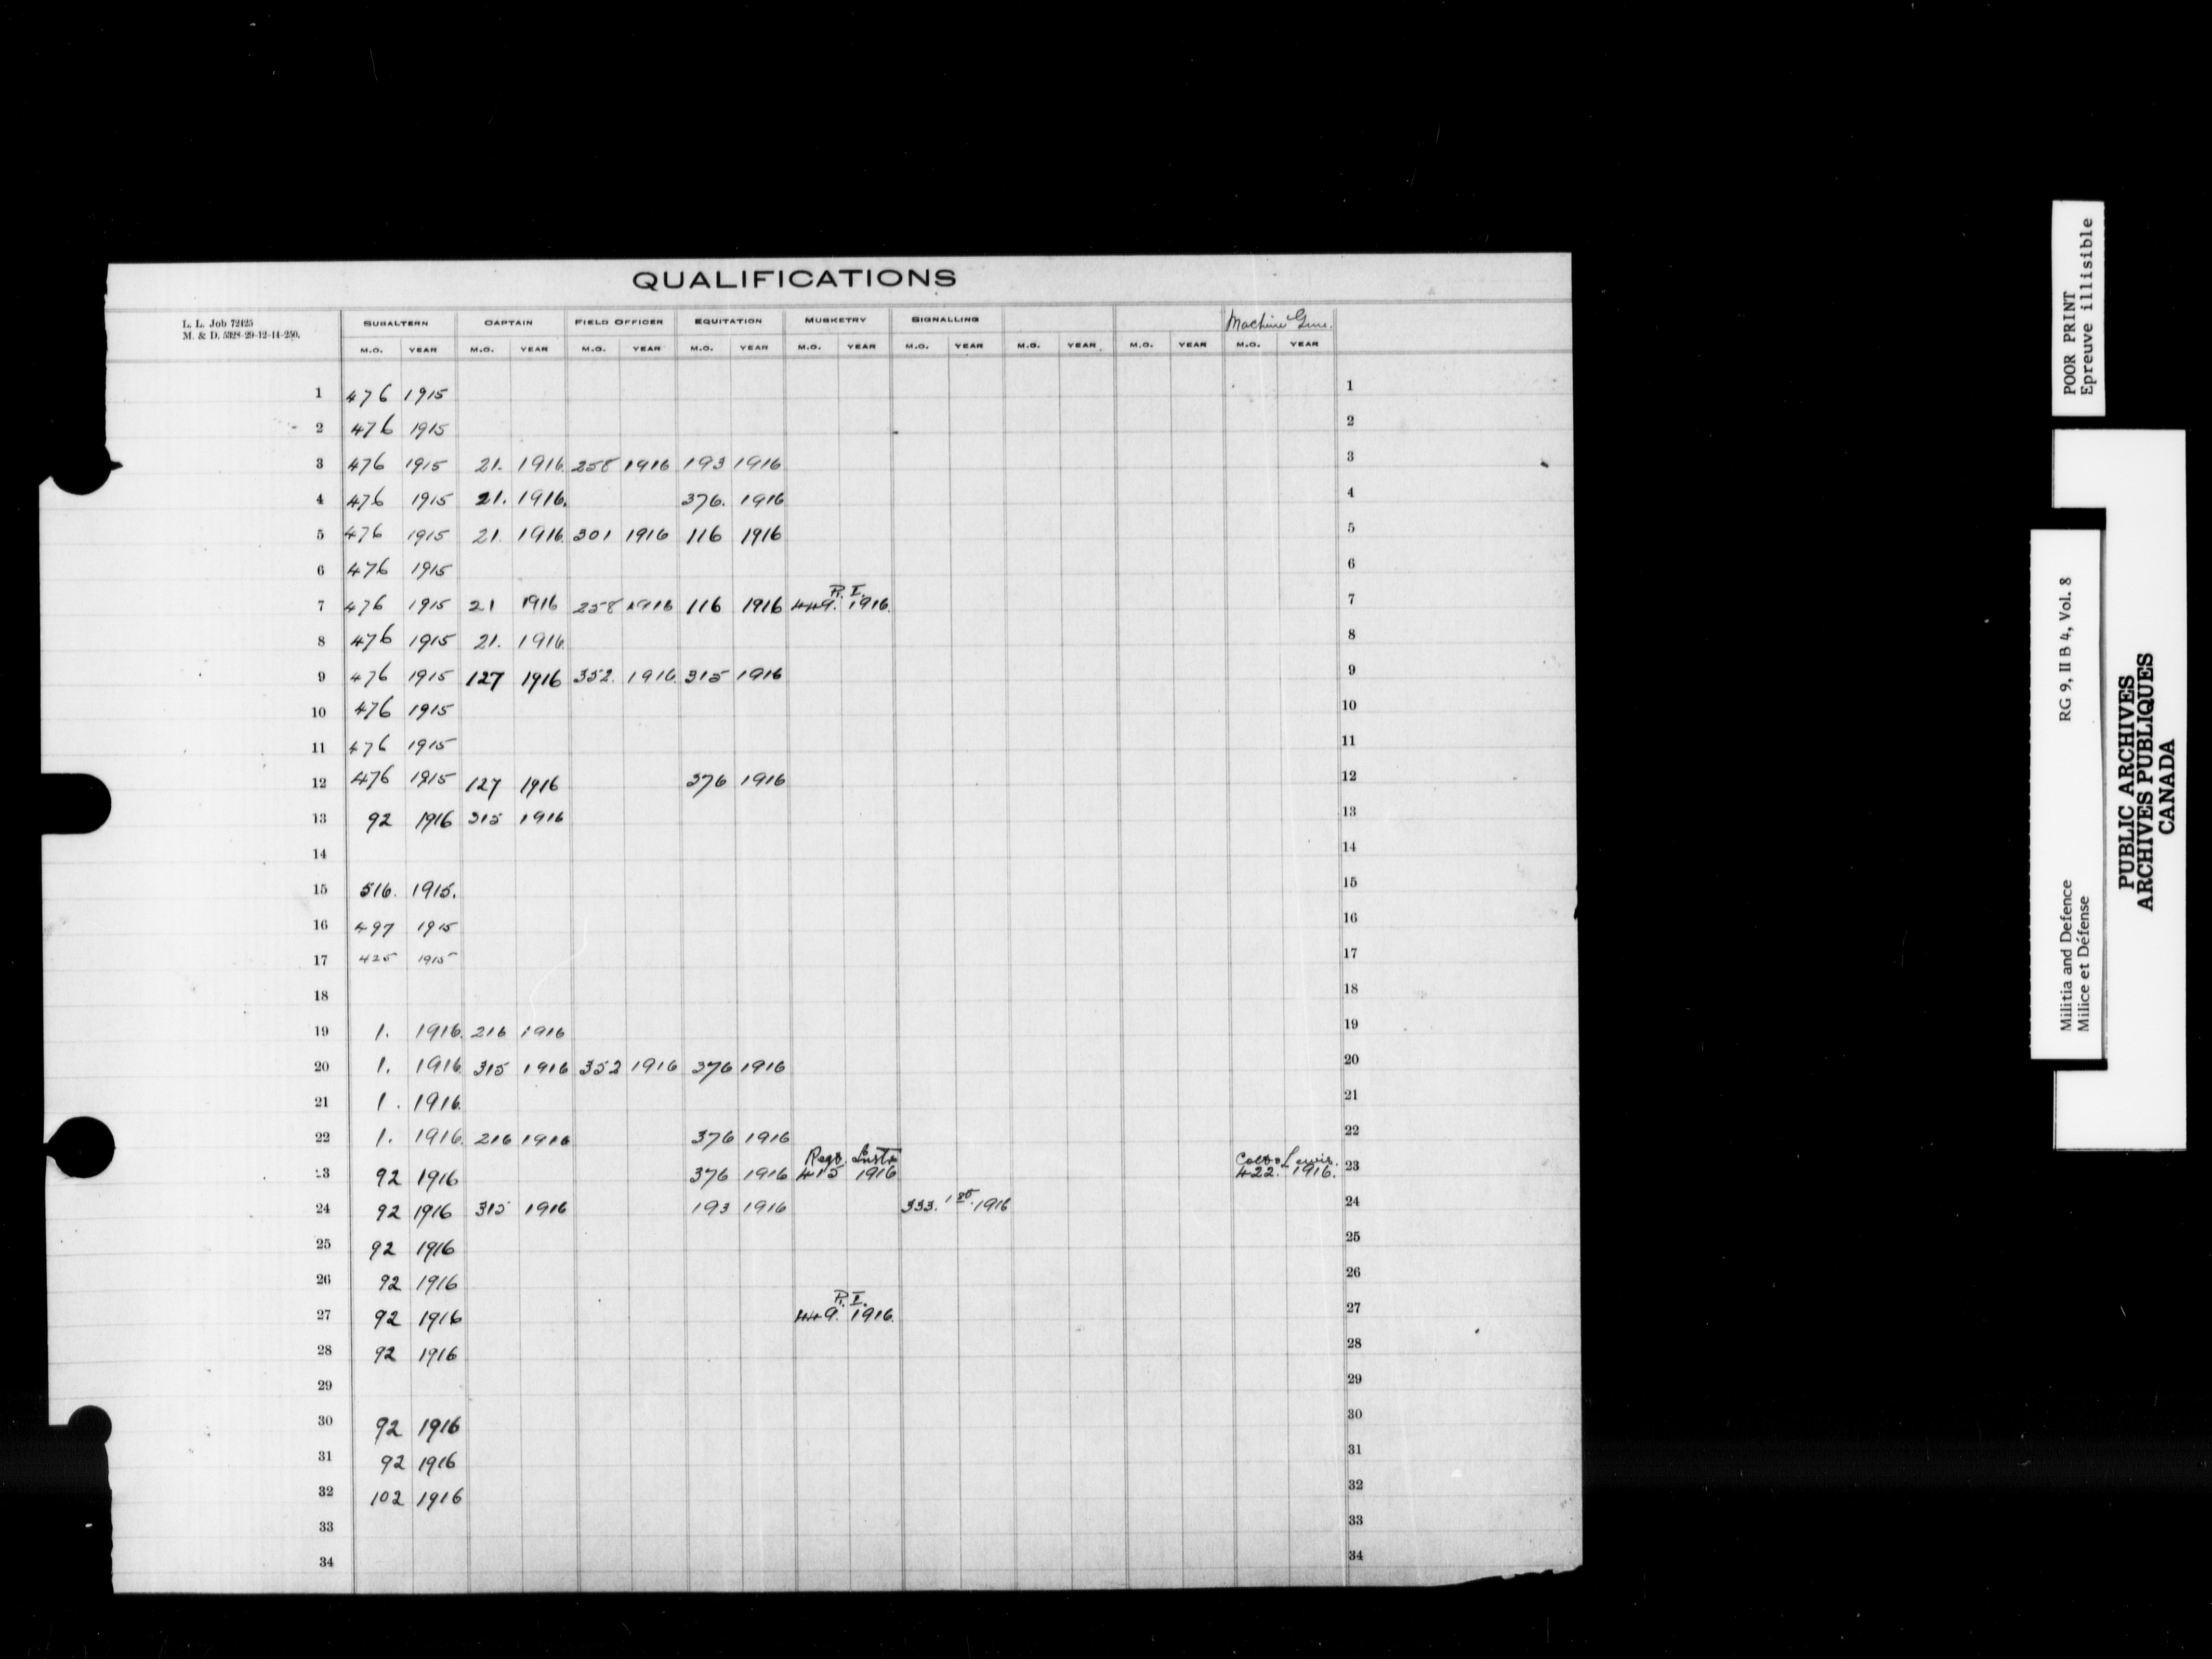 QUALIFICATIONS
L. L. Job 72425
M. & D. 5328-29-12-14-250.
SUBALTERN CAPTAIN FIELD OFFICER EQUITATION MUSKETRY SIGNALLING Machine Gun.
M.O. YEAR M.O. YEAR M.O. YEAR M.O. YEAR M.O. YEAR M.O. YEAR M.O. YEAR M.O. YEAR M.O. YEAR
1 476 1915 1
2 476 1915 2
3 476 1915 21. 1916. 258 1916 193 1916 3
4 476 1915 21. 1916. 376. 1916 4
5 476 1915 21. 1916. 301 1916 116 1916 5
6 476 1915 6
R. I.
7 476 1915 21 1916 258 1916 116 1916 449. 1916. 7
8 476 1915 21. 1916. 8
9 476 1915 127 1916 352. 1916. 315 1916 9
10 476 1915 10
11 476 1915 11
12 476 1915 127 1916 376 1916 12
13 92 1916 315 1916 13
14 14
15 516. 1915. 15
16 497 1915 16
17 425 1915 17
18 18
19 1. 1916. 216 1916 19
20 1. 1916. 315 1916 352 1916 376 1916 20
21 1. 1916. 21
22 1. 1916. 216 1916 376 1916 22
Regt. Instr Colt & Lewis.
23 92 1916 376 1916 415 1916 422. 1916. 23
24 92 1916 315 1916 193 1916 333. 1916 24
25 92 1916 25
26 92 1916 26
R. I.
27 92 1916 449. 1916. 27
28 92 1916 28
29 29
30 92 1916 30
31 92 1916 31
32 102 1916 32
33 33
34 34
POOR PRINT
Epreuve illisible
RG 9, II B 4, Vol. 8
Militia and Defence
Milice et Défense
PUBLIC ARCHIVES
ARCHIVES PUBLIQUES
CANADA